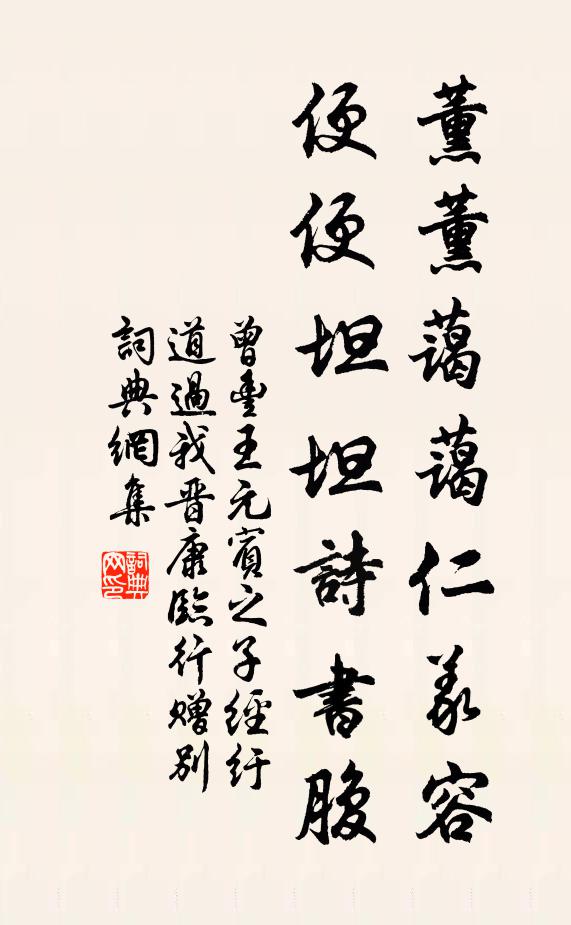 薰薰藹藹仁義容
便便坦坦詩書腹
曾豐王元賓之子經紆
道過我晋康臨行贈別
詞典網集
詞典網印